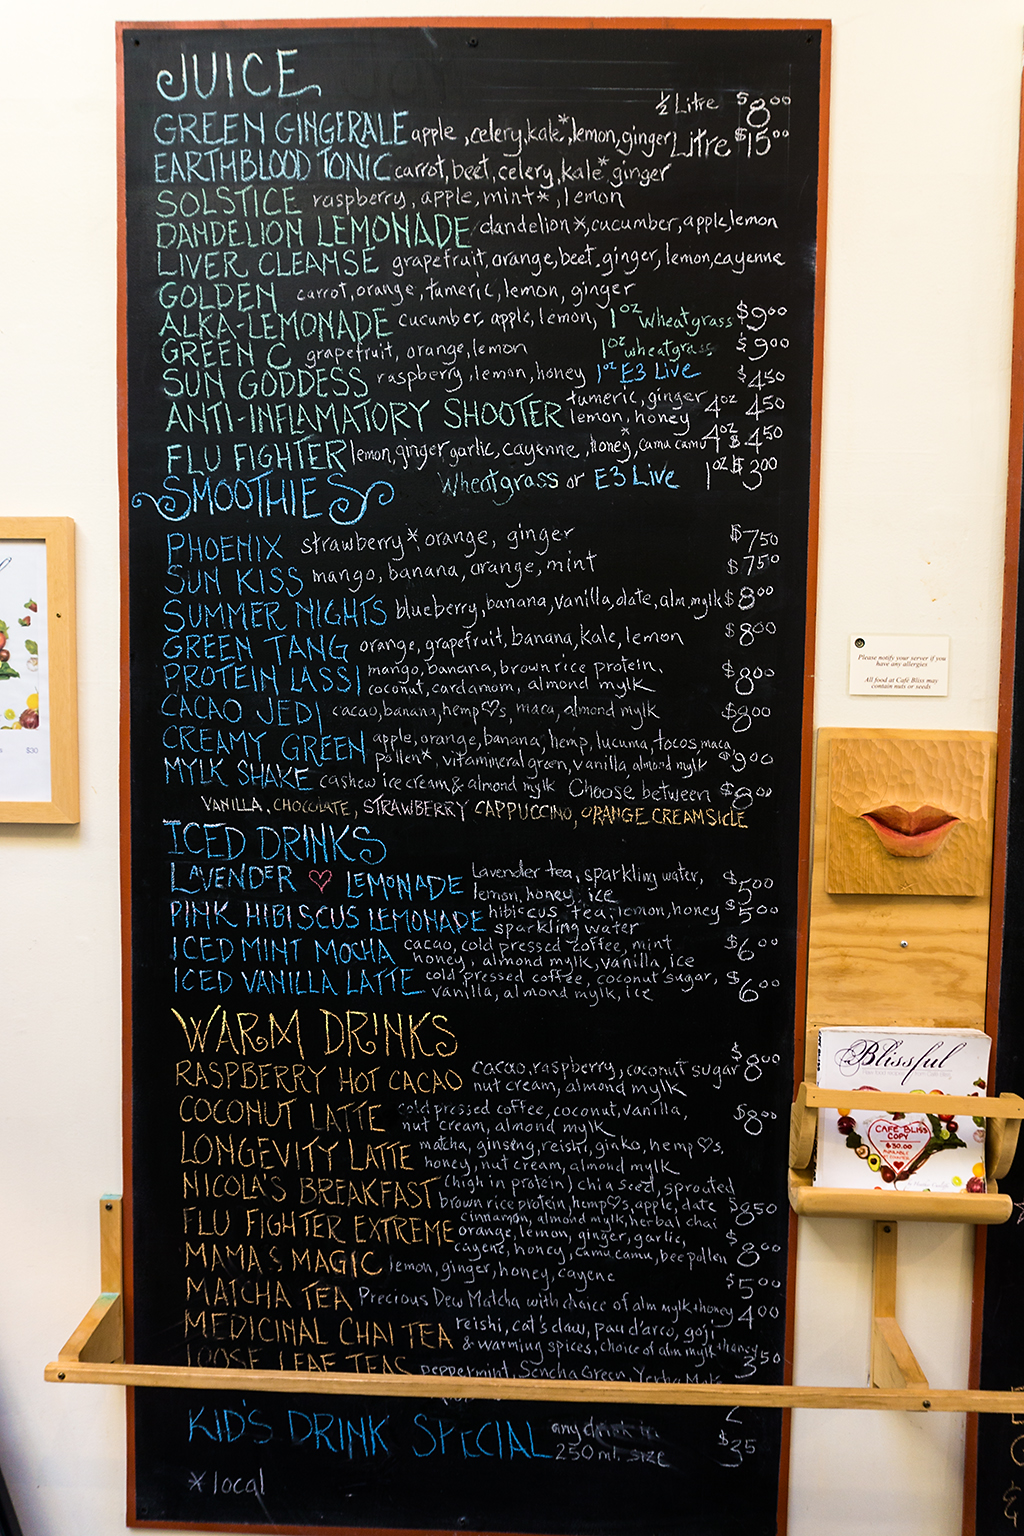 JUICE
½ Litre $8⁰⁰
GREEN GINGERALE apple, celery, kale*, lemon, ginger Litre $15⁰⁰
EARTHBLOOD TONIC carrot, beet, celery, kale* ginger
SOLSTICE raspberry, apple, mint*, lemon
DANDELION LEMONADE dandelion*, cucumber, apple, lemon
LIVER CLEANSE grapefruit, orange, beet, ginger, lemon, cayenne
GOLDEN carrot, orange, tumeric, lemon, ginger
ALKA-LEMONADE cucumber, apple, lemon, 1 oz wheatgrass $9⁰⁰
GREEN C grapefruit, orange, lemon 1oz wheatgrass $9⁰⁰
SUN GODDESS raspberry, lemon, honey 1oz E3 Live $4⁵⁰
ANTI-INFLAMATORY SHOOTER tumeric, ginger
lemon, honey 4oz 4⁵⁰
FLU FIGHTER lemon, ginger garlic, cayenne, honey*, camu camu 4oz $4⁵⁰
Wheatgrass or E3 Live 1oz $3⁰⁰
SMOOTHIES
PHOENIX strawberry*, orange, ginger $7⁵⁰
SUN KISS mango, banana, orange, mint $7⁵⁰
SUMMER NIGHTS blueberry, banana, vanilla, date, alm. mylk $8⁰⁰
GREEN TANG orange, grapefruit, banana, kale, lemon $8⁰⁰
PROTEIN LASSI mango, banana, brown rice protein,
coconut, cardamom, almond mylk $8⁰⁰
CACAO JEDI cacao, banana, hemp ♡s, maca, almond mylk $8⁰⁰
CREAMY GREEN apple, orange, banana, hemp, lucuma, tocos, maca,
pollen*, vitamineral green, vanilla, almond mylk $9⁰⁰
MYLK SHAKE cashew ice cream & almond mylk Choose between $8⁰⁰
VANILLA, CHOCOLATE, STRAWBERRY CAPPUCCINO, ORANGE CREAMSICLE
ICED DRINKS
LAVENDER ♡ LEMONADE Lavender tea, sparkling water,
lemon, honey, ice $5⁰⁰
PINK HIBISCUS LEMONADE hibiscus tea, lemon, honey
sparkling water $5⁰⁰
ICED MINT MOCHA cacao, cold pressed coffee, mint
honey, almond mylk, vanilla, ice $6⁰⁰
ICED VANILLA LATTE cold pressed coffee, coconut sugar,
vanilla, almond mylk, ice $6⁰⁰
WARM DRINKS
RASPBERRY HOT CACAO cacao, raspberry, coconut sugar $8⁰⁰
nut cream, almond mylk
COCONUT LATTE cold pressed coffee, coconut, vanilla,
nut cream, almond mylk $8⁰⁰
LONGEVITY LATTE matcha, ginseng, reishi, ginko, hemp ♡s,
honey, nut cream, almond mylk
NICOLA'S BREAKFAST (high in protein) chia seed, sprouted
brown rice protein, hemp ♡s, apple, date $8⁵⁰
cinnamon, almond mylk, herbal chai
FLU FIGHTER EXTREME orange, lemon, ginger, garlic,
cayene, honey, camu camu, bee pollen $8⁰⁰
MAMA'S MAGIC lemon, ginger, honey, cayene $5⁰⁰
MATCHA TEA Precious Dew Matcha with choice of alm mylk + honey 4⁰⁰
MEDICINAL CHAI TEA reishi, cat's claw, pau d'arco, goji
& warming spices, choice of alm mylk + honey 3⁵⁰
LOOSE LEAF TEAS peppermint, Sencha Green, Yerba Mate
KID'S DRINK SPECIAL any drink in
250 ml. size $3⁵
* local
Please notify your server if you
have any allergies
All food at Café Bliss may
contain nuts or seeds
Blissful
CAFÉ BLISS
COPY
$30.00
$30